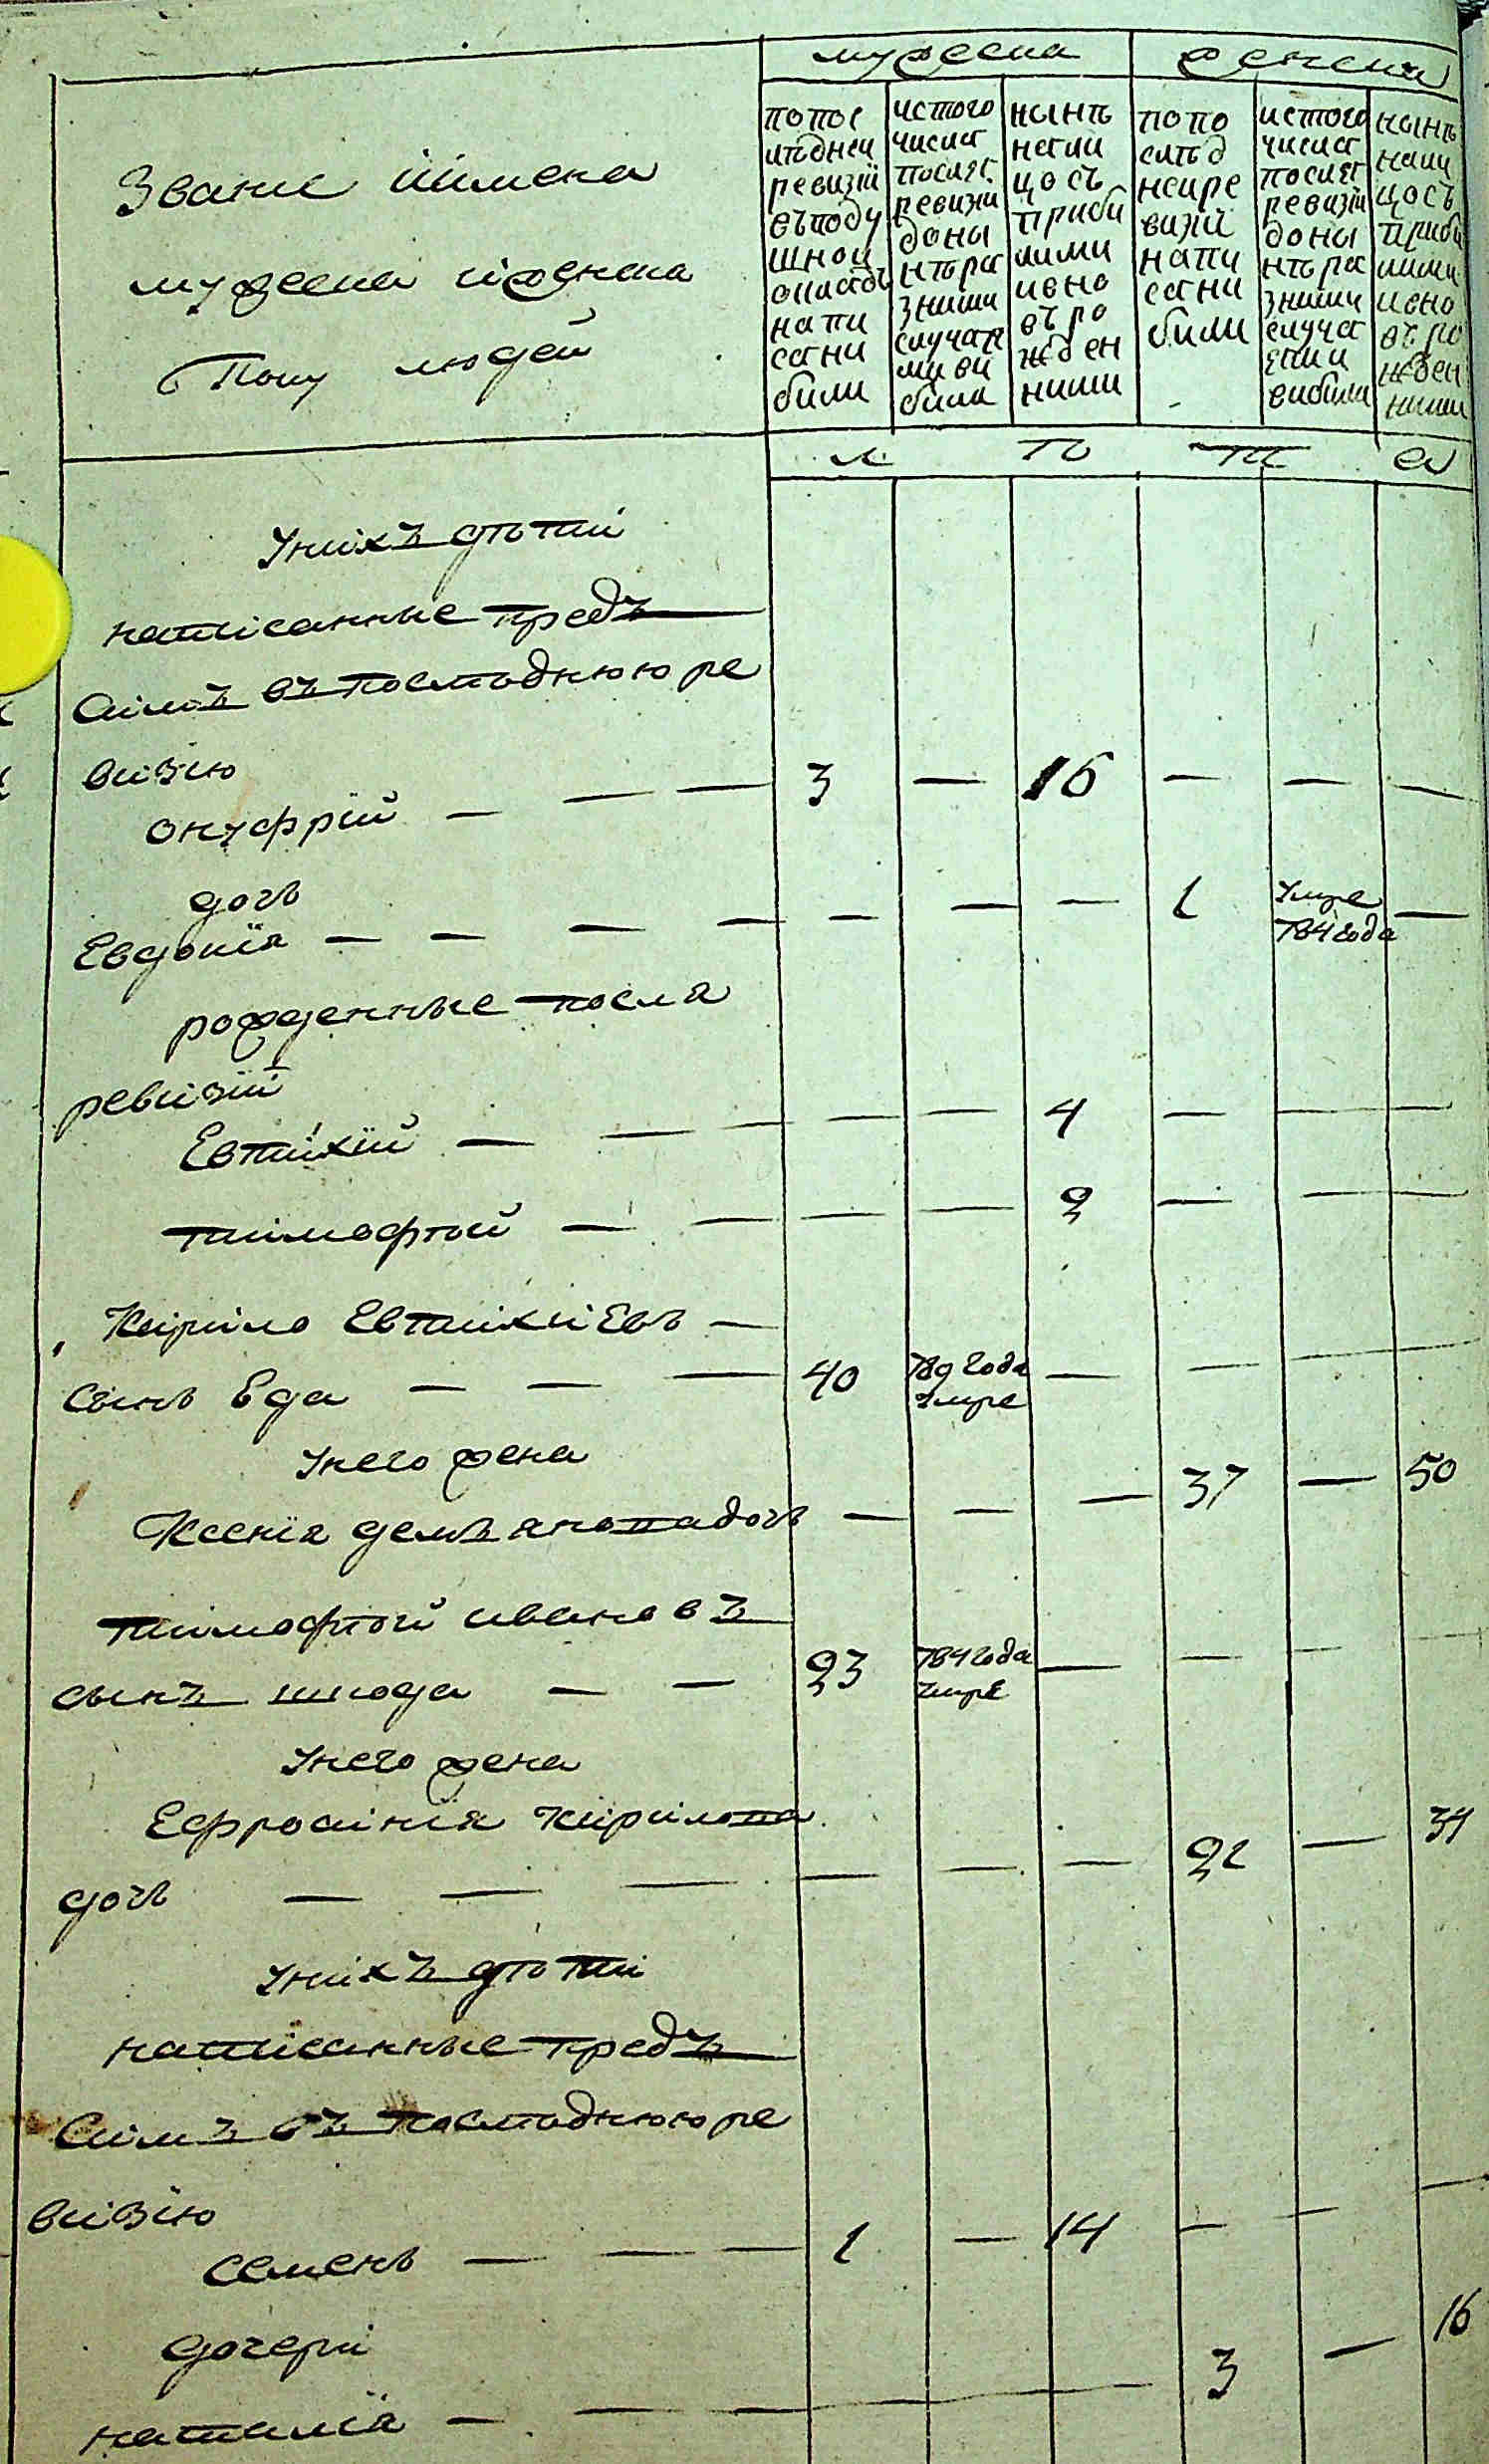 мужеска женска
Звание иимена
мужеска иженска
Полу людей
попос
лѣднеи
ревизiи
въподу
шнои
окладъ
напи
сани
били
истого
числа
послѣ
ревизии
доны
нѣра
зними
случая
ми ви
била
нынѣ
нали
цосъ
приби
лими
ивно
въро
жден
ними
попо
слѣд
неире
визiи
напи
сани
били
истого
числа
послѣ
ревизiи
доны
нѣра
зними
случа
ями
вибили
нынѣ
нали
цосъ
приби
лими
ивно
въ ро
жден
ними
л ѣ т а
Унихъ дѣти
написанные предъ
Симъ въ последнюю ре
визiю
Онуфрiй — — — 3 — 16 — — —
дочь
Евдокiя — — — — — — — 1 Умре 784 года —
рожденные посля
ревизiй
Евтихiй — — — — — 4 — — —
тимофѣй — — — — 9 — — —
Кирило Евтихiевъ —
сынъ Бда — — — 40 789 года Умре — — — —
Унего жена
Ксенiя демьяноvадочь — — — 37 — 50
тимофѣй ивановъ
сынъ шкода — — 23 784 года умре — — — —
Унего жена
Ефросинiя кирилоvа
дочь — — — — — — 21 — 34
Унихъ дѣти
написанные предъ
Симъ въ последнюю ре
визiю
Семенъ — — — 1 — 14 — — —
дочери
наталiя — — — — — — 3 — 16